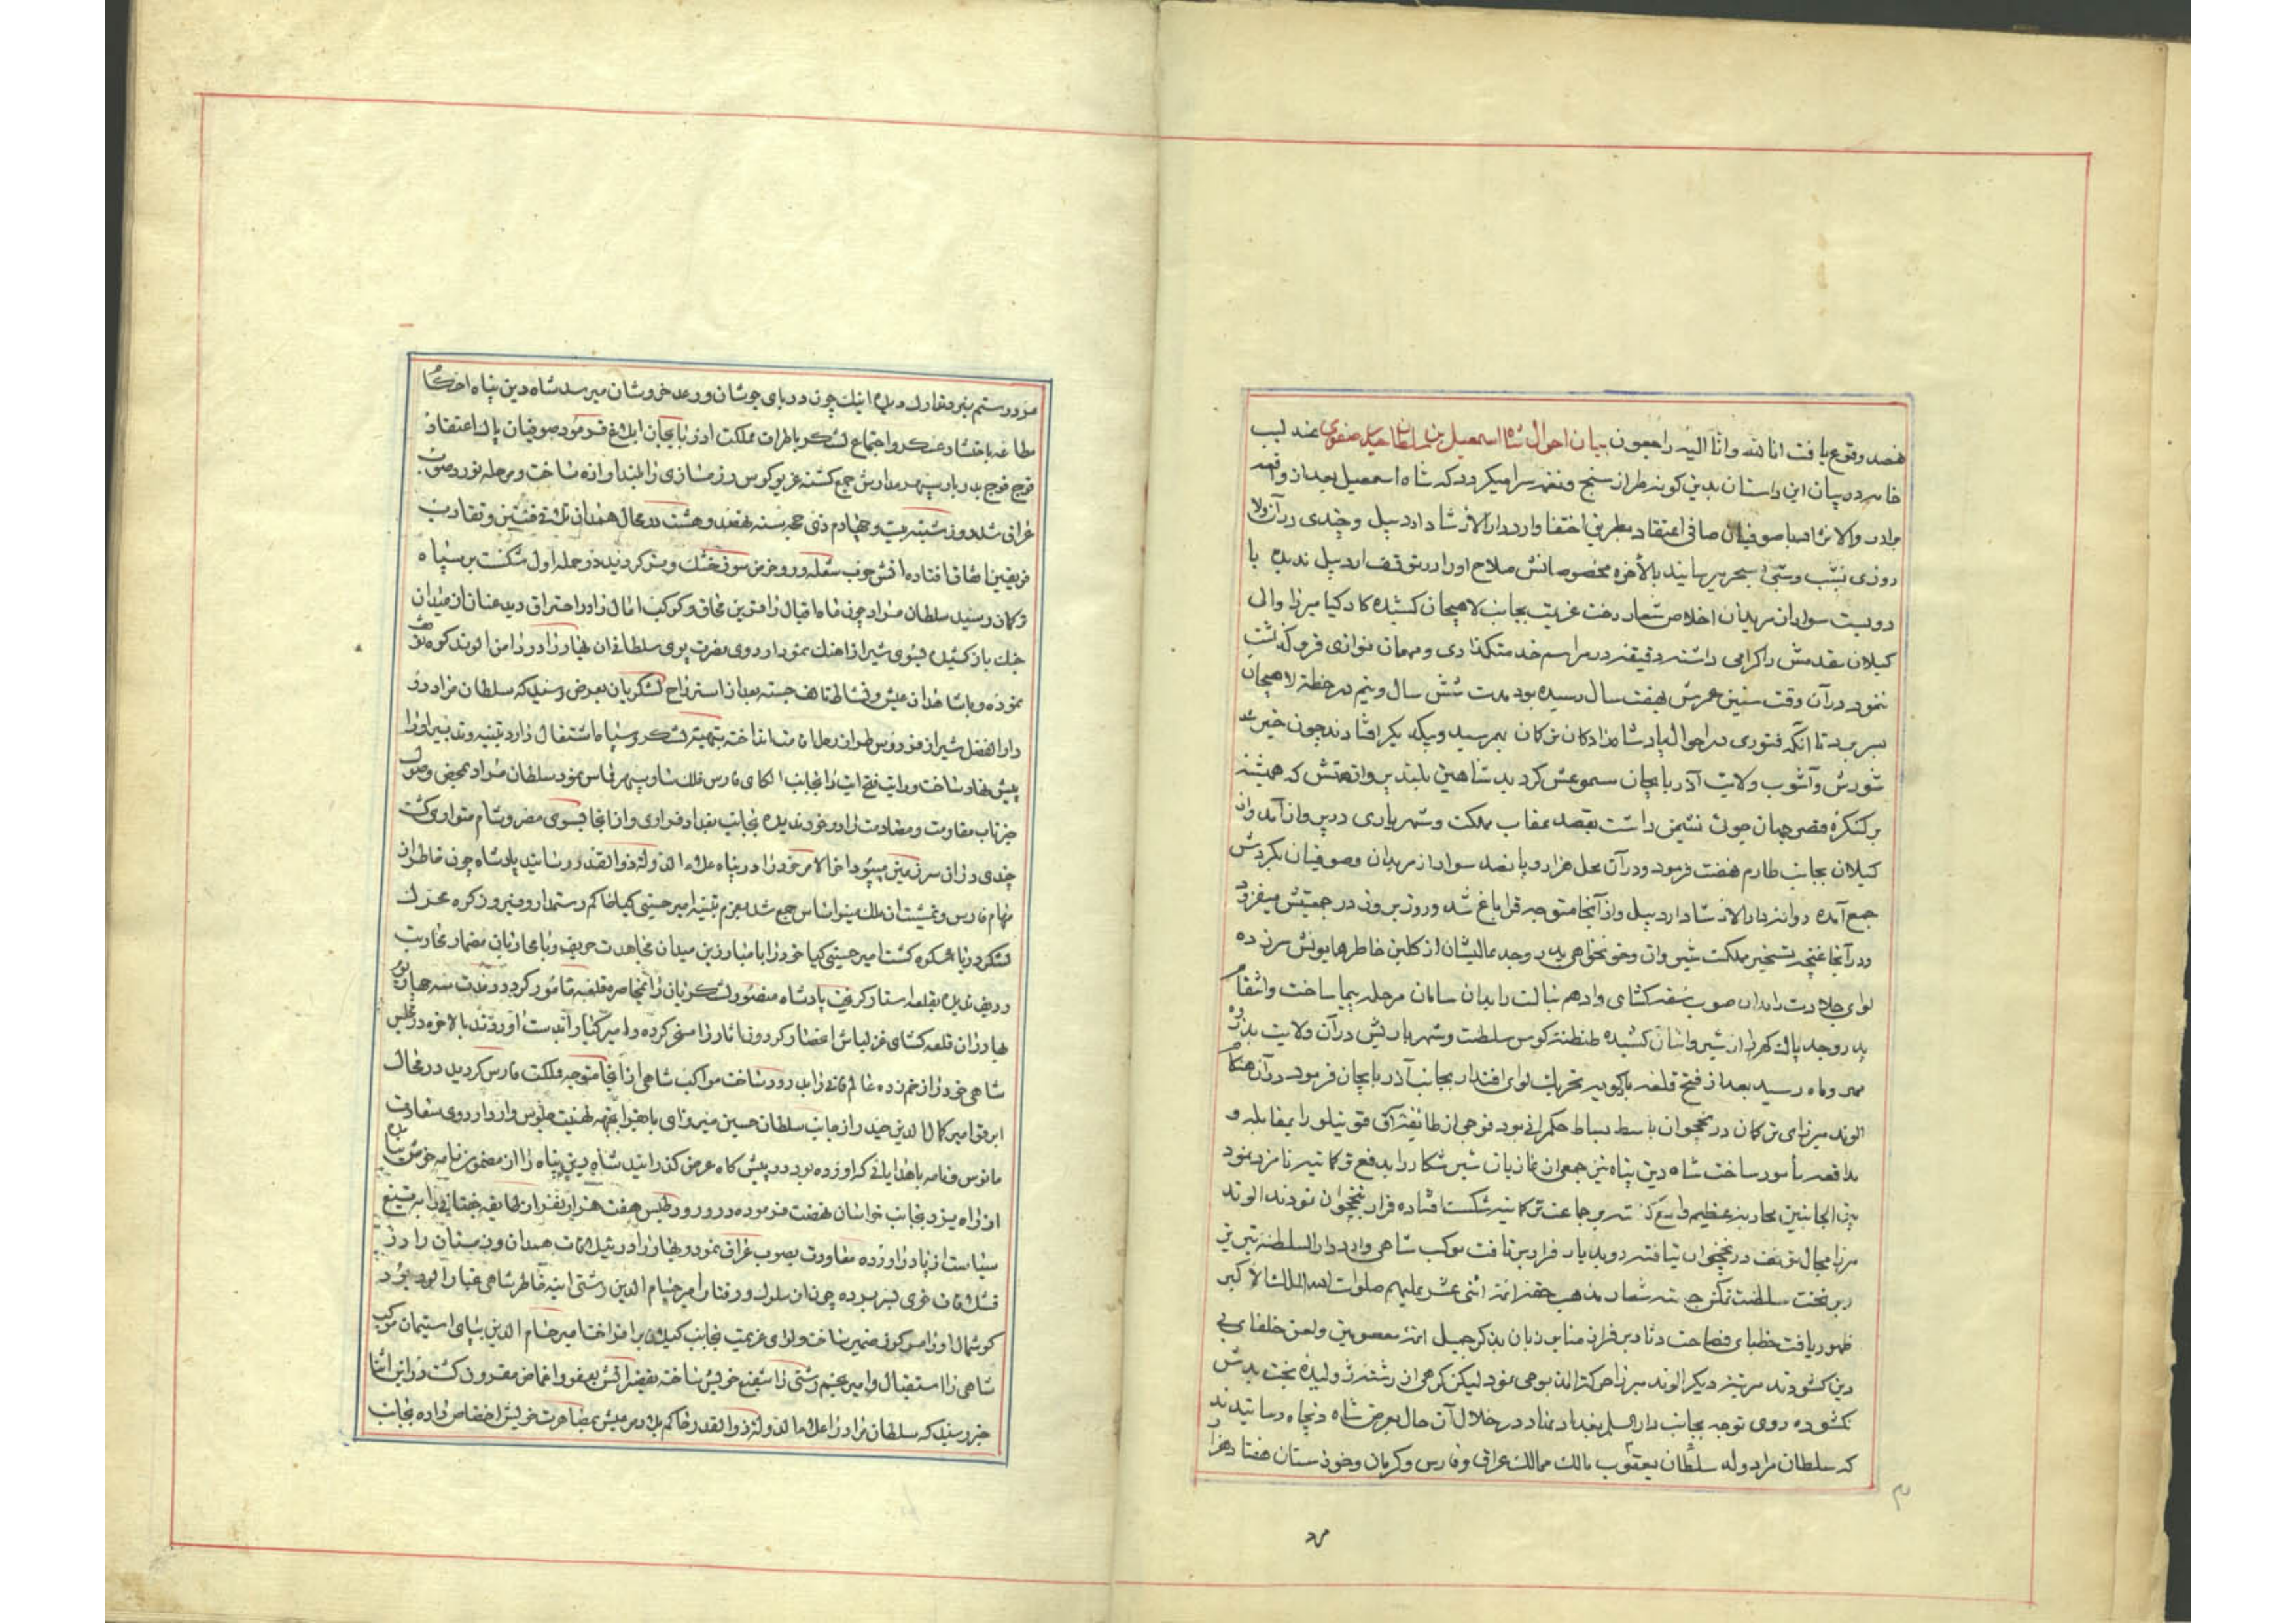 هصد وقوع یافت انا لله وانا الیه راجعون بیان احوال شاه اسمعیل بن سلطان حیدر صفوی عندلیب
خامه در بیان این داستان بدین کونه طراز سنج و نغمه سرا میکردد که شاه اسمعیل بعد از واقعه
برادر والانژاد با صوفیان صافی اعتقاد بطریق اختفا وارد دارالارشاد اردبیل و چندی در آن ولا
روزی بشب وشبی بسحر میرسانید بالأخره مخصوصانش صلاح او را در توقف اردبیل ندیده با
دویست سوار از مریدان اخلاص شعار رخت عزیمت بجانب لاهیجان کشیده کارکیا میرزا والی
کیلان مقدمش را کرامی داشته دقیقه در مراسم خدمتکذاری و مهمان نوازی فرو کذاشت
ننمود در آن وقت سنین عمرش بهفت سال رسیده بود مدت شش سال و نیم در خطه لاهیجان
بسر برد تا آنکه فتوری در احوال پادشاهزادکان ترکان بهم رسید و بیکدیکر افتادند چون خبر
شورش و آشوب ولایت آذربایجان مسموعش کردید شاهین بلند پرواز همتش که همیشه
بر کنکره قصر جهان چون نشیمن داشت بقصد عقاب مملکت و شهریاری در پرواز آمد و از
کیلان بجانب طارم نهضت فرمود و در آن محل هزار و پانصد سوار از مریدان و صوفیان بکردش
جمع آمده روانه دارالارشاد اردبیل و از آنجا متوجه قراباغ شد و روز بروز در جمعیتش میفزود
و در آنجا غنچه تسخیر مملکت شیروان و خونخواهی پدر و جد عالیشان از کلبن خاطر همایونش سر زده
لوای جلادت را بدان صوب شقه کشای و ادهم نبالت را بدان سامان مرحله پیما ساخت و انتقام
پدر و جد پاک کهر را از شیروانشان کشیده طنطنه کوس سلطنت و شهریاریش در آن ولایت بذروه
مهر و ماه رسید بعد از فتح قلعه باکویه تحریک لوای اقتدار بجانب آذربایجان فرمود در آن هنکام
الوند میرزای ترکمان در نخجوان باسط بساط حکمرانی بود فوجی از طایفه آق قوینلو را بمقابله و
مدافعه مأمور ساخت شاه دین پناه نیز جمعی از غازیان شیر شکار را بدفع ترکمانیه نامزد نمود
بین الجانبین محاربه عظیم واقع کشته بر جماعت ترکمانیه شکست افتاده فرار بنخجوان نمودند الوند
میرزا مجال توقف در نخجوان نیافته رو بدیار فرار بر تافت موکب شاهی وارد دارالسلطنه تبریز
و بر تخت سلطنت تمکن جسته شعار مذهب حقه ائمه اثنی عشر علیهم صلوات الله الملک الاکبر
ظهور یافت خطبای فصاحت دثار بر فراز منابر زبان بذکر جمیل ائمه معصومین و لعن خلفای بی
دین کشودند مرتبه دیکر الوند میرزا حرکت المذبوحی نمود لیکن کرهی از رشته ژولیده بخت بدش
نکشوده روی توجه بجانب دارالسلم بغداد نهاد در خلال آن حال بعرض شاه دینپناه رسانیدند
که سلطان مراد ولد سلطان یعقوب مالک ممالک عراق و فارس و کرمان و خوزستان هفتاد هزار
مرد رستم نبرد تدارک دیده اینک چون دریای جوشان و رعد خروشان میرسد شاه دین پناه احکام
مطاعه باحتشاد عسکر و اجتماع لشکر باطراف مملکت آذربایجان ابلاغ فرمود صوفیان پاک اعتقاد
فوج فوج بدربار سپهر مدارش جمع کشته غریو کوس رزمسازی را بلند آوازه ساخت و مرحله نورد صوب
عراق شد و روز شنبه بیست و چهارم ذی حجه سنه نهصد و هشت در محال همدان تلاقی فئتین و تقارب
فریقین اتفاق افتاده آتش حرب شعله ور و خرمن سوز خشک و تر کردیده در حمله اول شکست بر سپاه
ترکمان رسید سلطان مراد چون ماه اقبال را قرین محاق و کوکب آمال را در احتراق دید عنان از میدان
جنک باز کشیده بسوی شیراز آهنک نمود اردوی نصرت پوی سلطانی آن بهار را در دامن الوند کوه توقف
نموده و با شاهدان عیش و نشاط تا هف جسته بعد از استرواح لشکریان بعرض رسید که سلطان مراد در
دارالفضل شیراز فردوس طراز رحل اقامت انداخته بتهیه لشکر و سپاه اشتغال دارد تنبیه و تدمیر او را
پیش نهاد ساخت و رایت فتح آیت را بجانب الکای فارس فلک سا و سپهر مماس نمود سلطان مراد بمحض وصول
خبر تاب مقاومت و مصادمت را در خود ندیده بجانب بغداد فراری و از آنجا بسوی مصر و شام متواری کشت
چندی در آن سرزمین میبود آخر الامر خود را در پناه علاء الدوله ذوالقدر رسانید پادشاه چون خاطر از
مهام فارس و تمشیت آن ملک مینو اساس جمع شد بعزم تنبیه امیر حسین کیا حاکم رستمدار و فیروزکوه محرک
لشکر دریا شکوه کشت امیر حسین کیا خود را با مبارزین میدان مجاهدت حریف و با محاربان مضمار محاربت
ردیف ندیده بقلعه استا کریخت پادشاه منصور لشکریان را بمحاصره قلعه مأمور کرد در مدت سه چهار یوم
بهادران قلعه کشای قزلباش حصار کردون آثار را مسخر کرده و امیر کیا را بدست آوردند بالاخره در مجلس
شاهی خود را از غم زده عالم فانی را بدرود ساخت موکب شاهی از آنجا متوجه مملکت فارس کردید در محال
ابرقو امیر کمال الدین حیدر از جانب سلطان حسین میرزای بایقرا بجهه تهنیت جلوس وارد اردوی سعادت
مانوس و نامه باهدایائی که آورده بود در پیش کاه عرض کذرانید شاه دین پناه را از مضمون نامه خوش نیامده
از راه یزد بجانب خراسان نهضت فرموده در ورود طبس هفت هزار نفر از طایفه جغتائی را به تیغ
سیاست از پا در آورده معاودت بصوب عراق نمود و بهار را در ییلاقات همدان و زمستان را در
قشلاقات خوی بسر برده چون از سلوک و رفتار امیر حسام الدین رشتی آئینه خاطر شاهی غبار آلود بود
کوشمال او را مرکوز ضمیر ساخت و لوای عزیمت بجانب کیلان بر افراخت امیر حسام الدین بپای استیمان موکب
شاهی را استقبال و امیر نجم رشتی را شفیع خویش ساخته تقصیراتش بعفو و اغماض مقرون کشت در این اثنا
خبر رسید که سلطان مراد را علاء الدوله ذوالقدر حاکم بلاد مرعش بمصاهرت خویش اختصاص داده بجانب